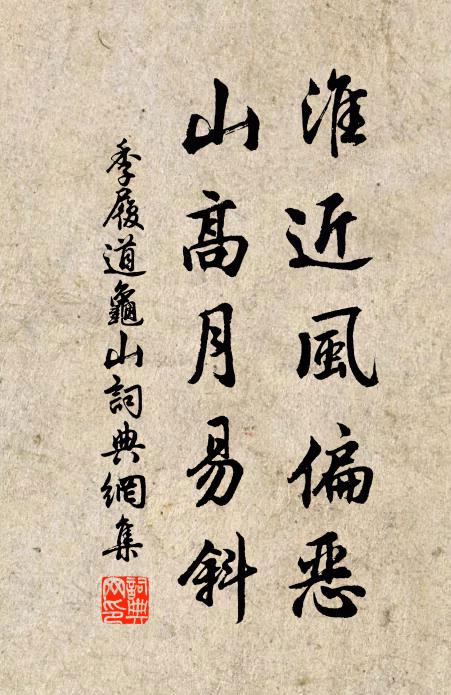 淮近風偏惡
山高月易斜
季履道龜山詞典網集
詞典网印